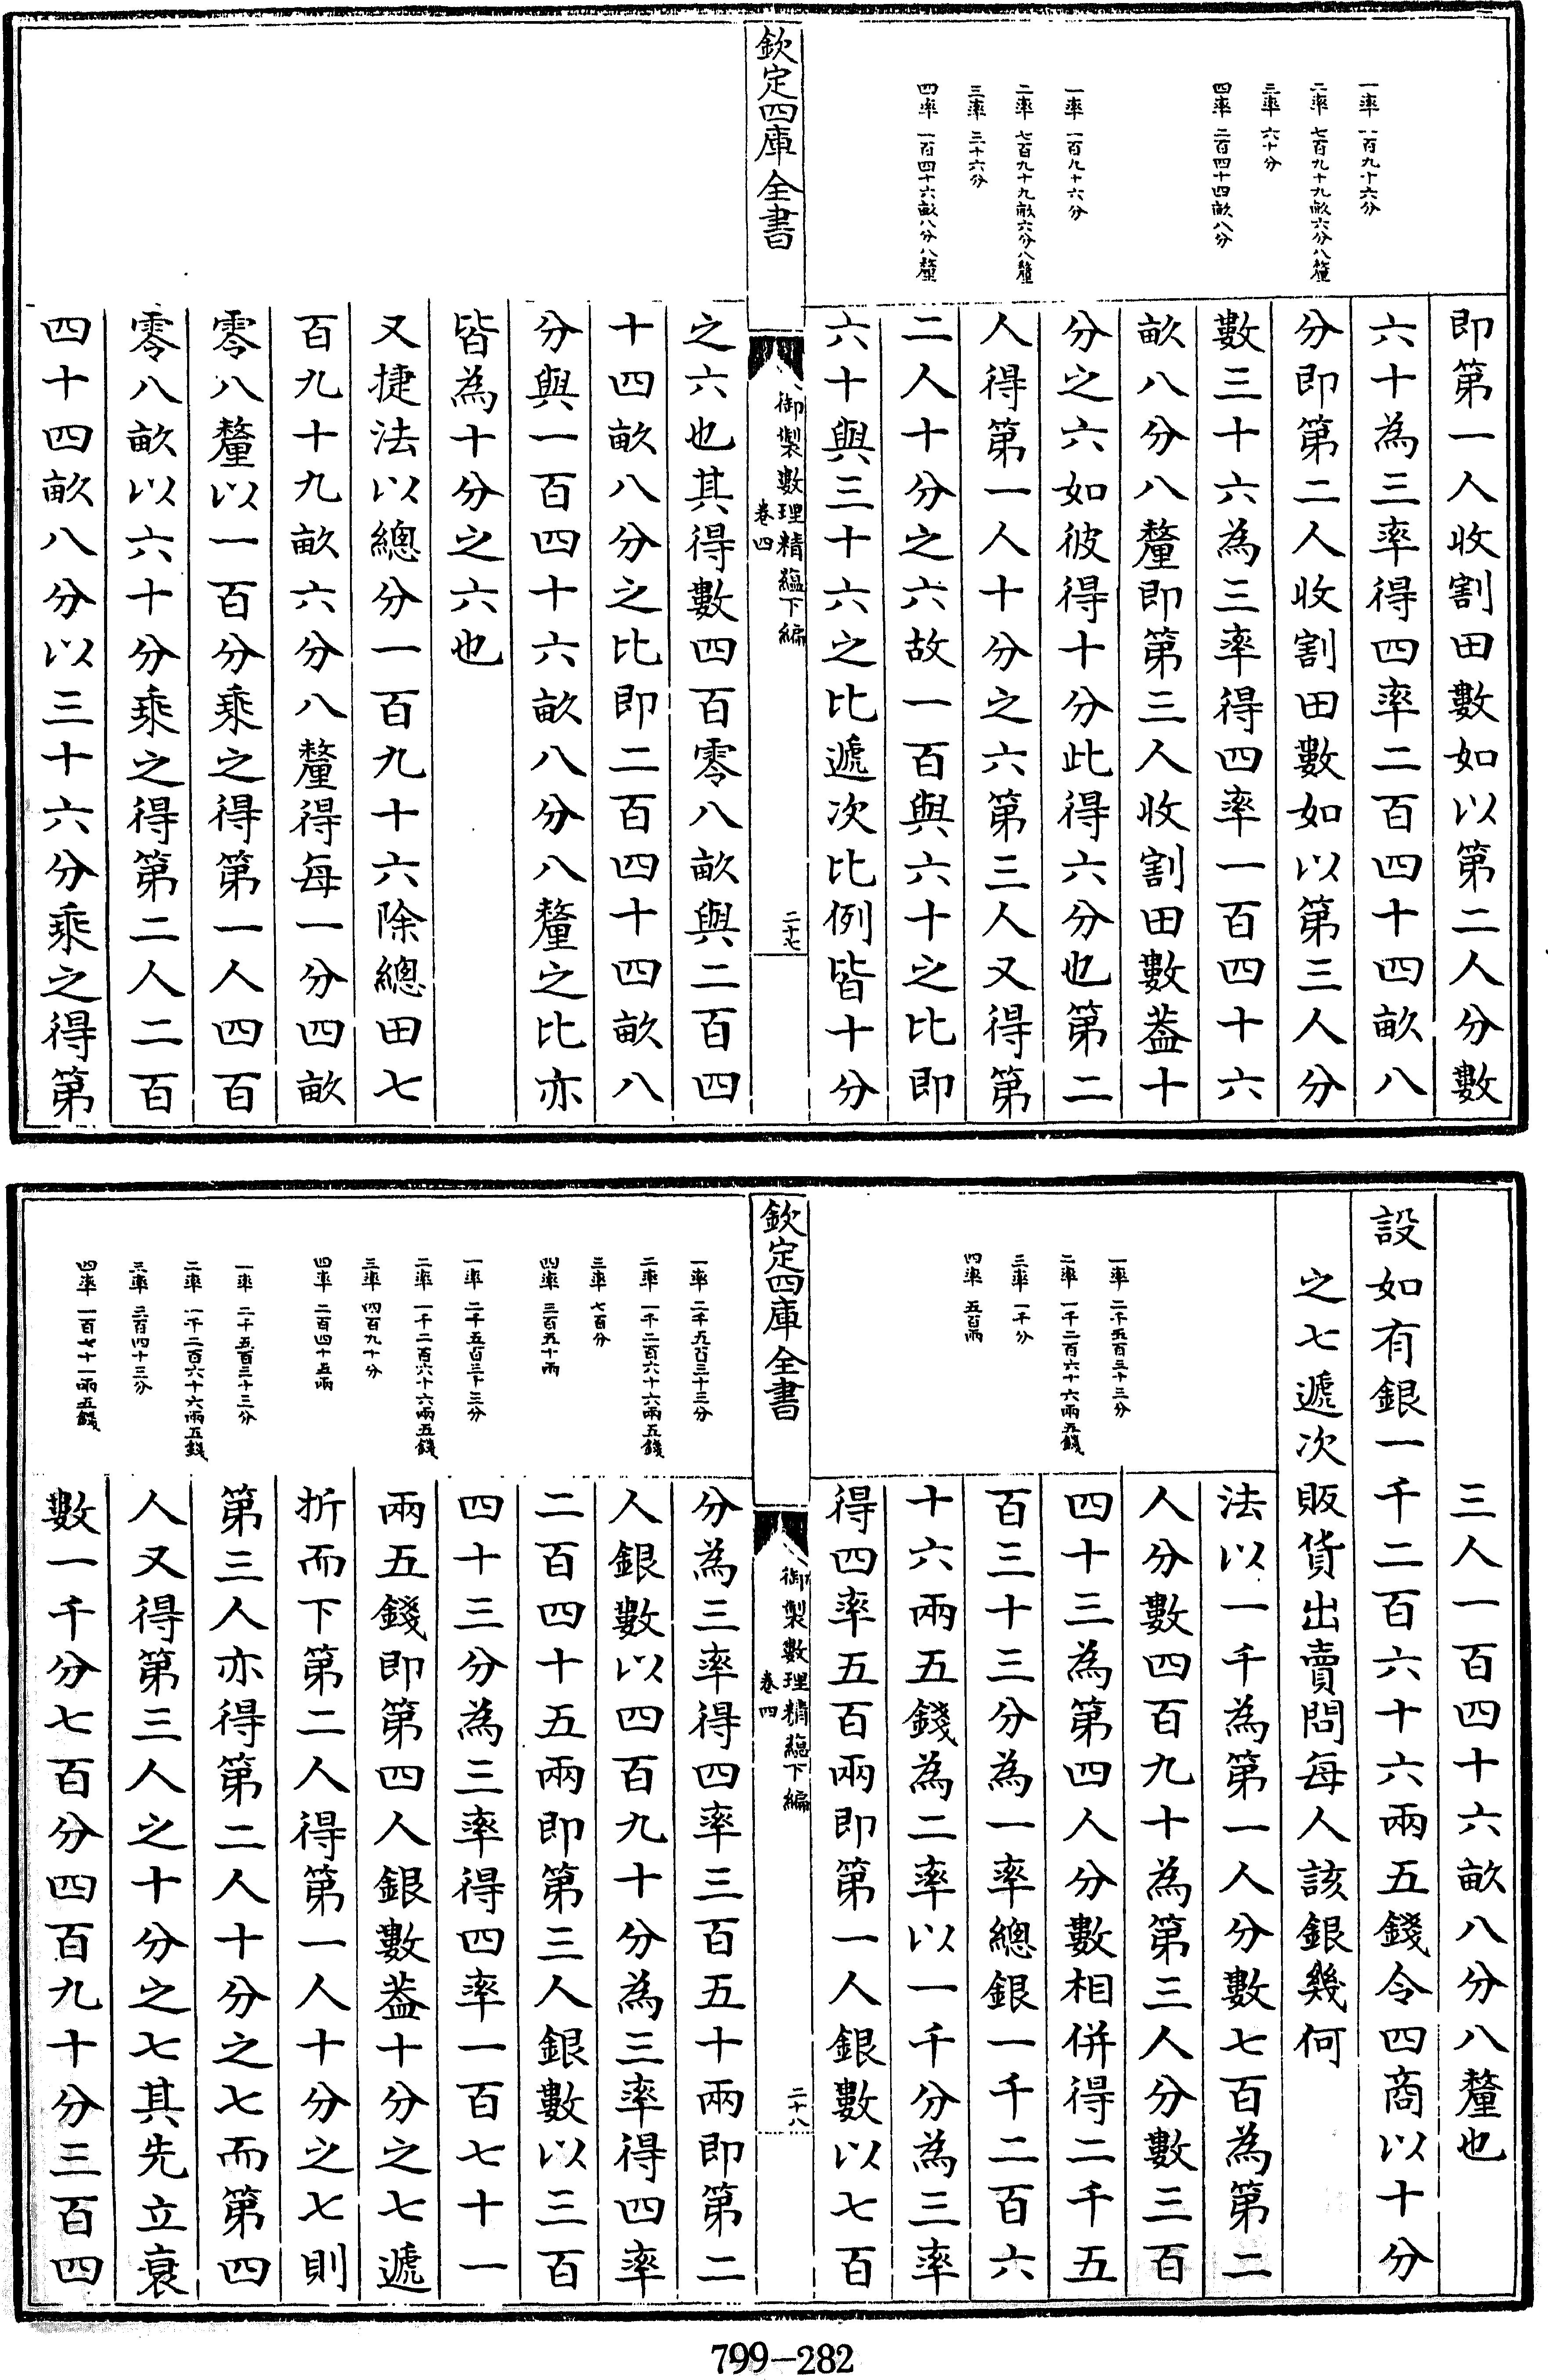 一率 一百九十六分
二率 七百九十九畝六分八釐
三率 六十分
四率 二百四十四畝八分
一率 一百九十六分
二率 七百九十九畝六分八釐
三率 三十六分
四率 一百四十六畝八分八釐
即第一人收割田數如以第二人分數
六十為三率得四率二百四十四畝八
分即第二人收割田數如以第三人分
數三十六為三率得四率一百四十六
畝八分八釐即第三人收割田數葢十
分之六如彼得十分此得六分也第二
人得第一人十分之六第三人又得第
二人十分之六故一百與六十之比即
六十與三十六之比遞次比例皆十分
欽定四庫全書
御製數理精蘊下編
卷四
二十七
之六也其得數四百零八畝與二百四
十四畝八分之比即二百四十四畝八
分與一百四十六畝八分八釐之比亦
皆為十分之六也
又捷法以總分一百九十六除總田七
百九十九畝六分八釐得每一分四畝
零八釐以一百分乘之得第一人四百
零八畝以六十分乘之得第二人二百
四十四畝八分以三十六分乘之得第
三人一百四十六畝八分八釐也
設如有銀一千二百六十六兩五錢令四商以十分
之七遞次販貨出賣問每人該銀幾何
一率 二千五百三十三分
二率 一千二百六十六兩五錢
三率 一千分
四率 五百兩
法以一千為第一人分數七百為第二
人分數四百九十為第三人分數三百
四十三為第四人分數相併得二千五
百三十三分為一率總銀一千二百六
十六兩五錢為二率以一千分為三率
得四率五百兩即第一人銀數以七百
欽定四庫全書
御製數理精蘊下編
卷四
二十八
一率 二千五百三十三分
二率 一千二百六十六兩五錢
三率 七百分
四率 三百五十兩
一率 二千五百三十三分
二率 一千二百六十六兩五錢
三率 四百九十分
四率 二百四十五兩
一率 二千五百三十三分
二率 一千二百六十六兩五錢
三率 三百四十三分
四率 一百七十一兩五錢
分為三率得四率三百五十兩即第二
人銀數以四百九十分為三率得四率
二百四十五兩即第三人銀數以三百
四十三分為三率得四率一百七十一
兩五錢即第四人銀數葢十分之七遞
折而下第二人得第一人十分之七則
第三人亦得第二人十分之七而第四
人又得第三人之十分之七其先立衰
數一千分七百分四百九十分三百四
799-282